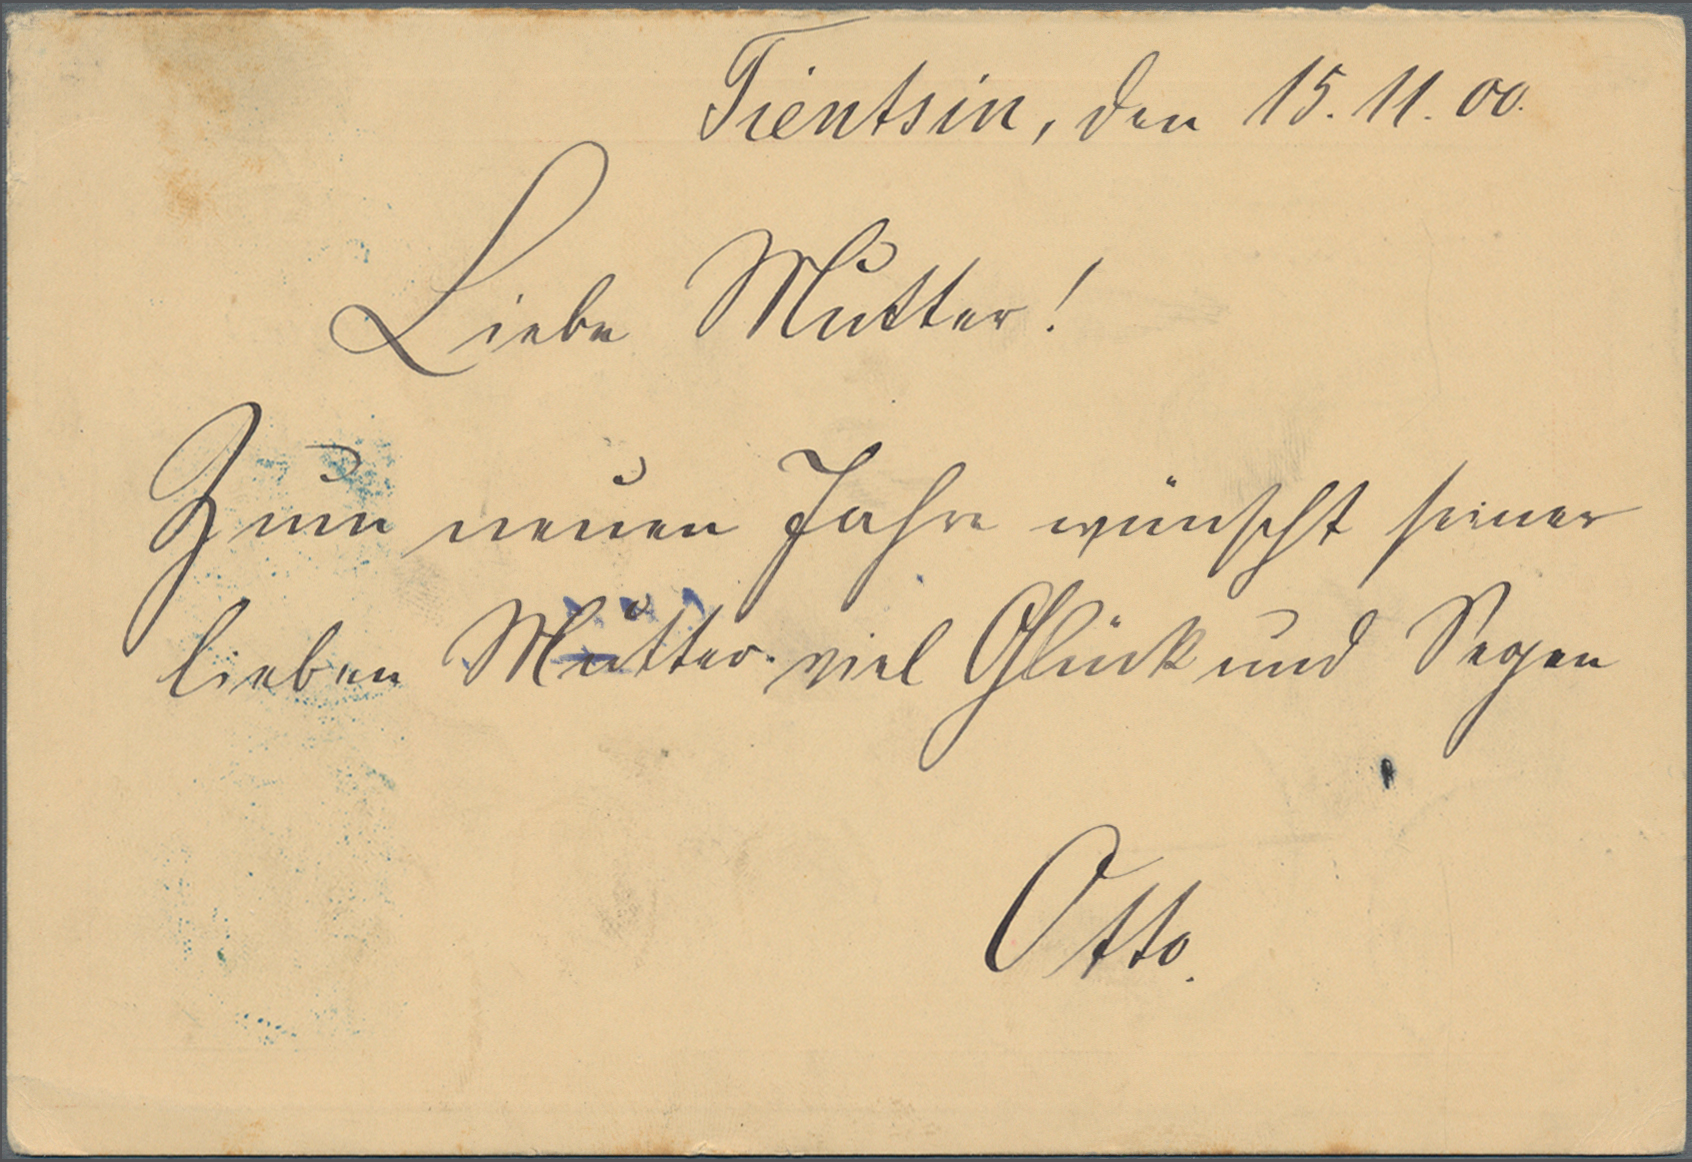 Tientsin, den 15.11.00.
Liebe Mutter!
Zum neuen Jahre wünscht seiner
lieben Mutter viel Glück und Segen
Otto.